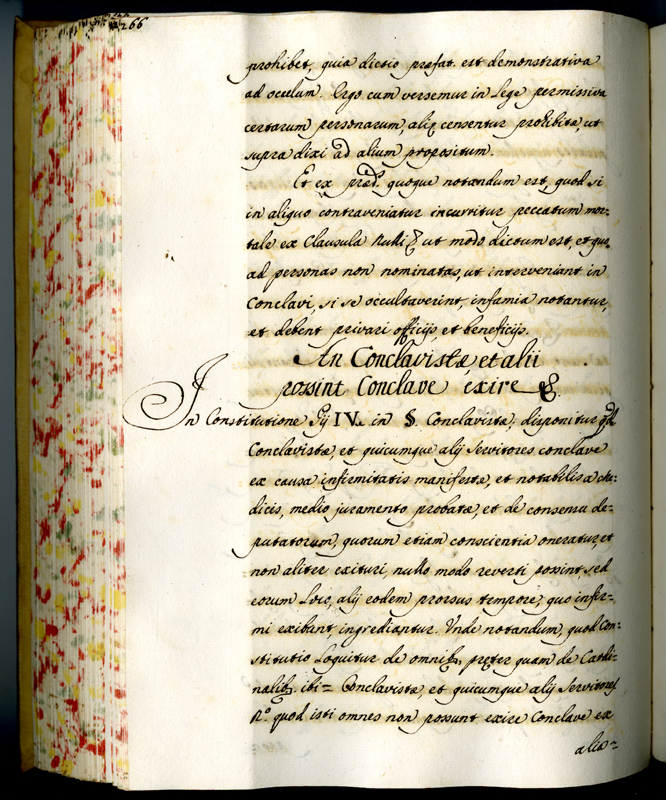 266
prohibet, quia dictio præfat. est demonstrativa
ad oculum. Ergo cum versemur in Lege permissiva
certarum personarum, aliq censentur prohibitæ, ut
supra dixi ad alium propositum.
Et ex præd. quoque notandum est, quod si
in aliquo contraveniatur incurritur peccatum mor=
tale ex Clausula Nulli & ut modo dictum est, et quo
ad personas non nominatas, ut interveniant in
Conclavi, si se occultaverint, infamia notantur,
et debent privari officijs, et beneficijs.
An Conclavistæ, et alii
possint Conclave exire &.
In Constitutione Pij IV. in §. Conclavistæ, disponitur qd
Conclavistæ, et quicumque alij Servitores conclave
ex causa infirmitatis manifestæ, et notabilis a me:
dicis, medio juramento probatæ, et de consensu de=
putatorum, quorum etiam conscientia oneratur, et
non aliter exituri, nullo modo reverti possint sed
eorum Loco, alij eodem prorsus tempore, quo infir=
mi exibant, ingrediantur. Unde notandum, quod Con=
stitutio Loquitur de omnib, præter quam de Cardi=
nalib, ibi= Conclavistæ, et quicumque alij Servitores
R.º quod isti omnes non possunt exire Conclave ex
alia=